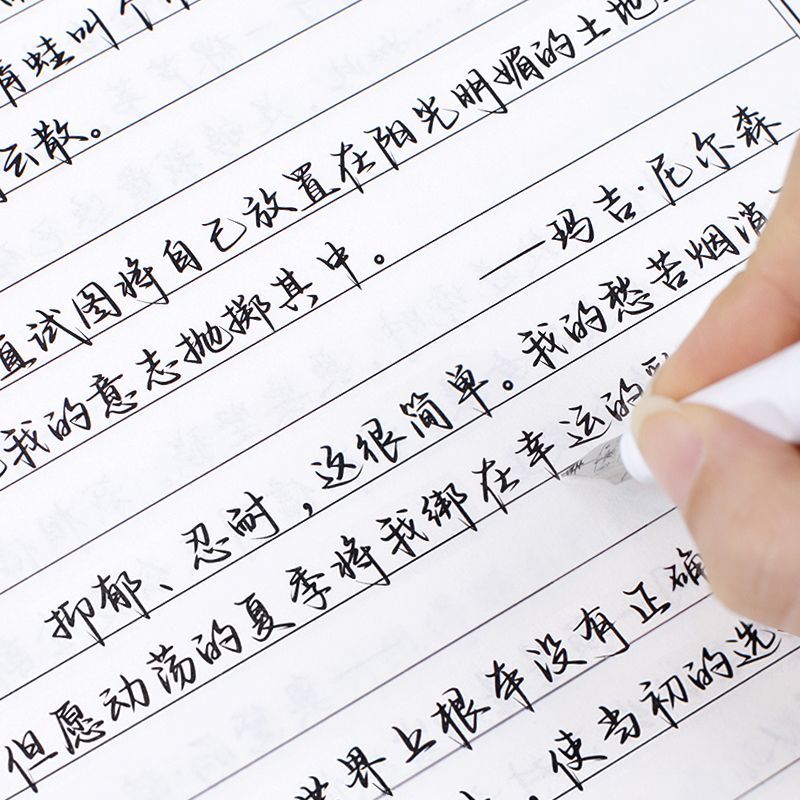 青蛙叫个
云散。
直试图将自己放置在阳光明媚的土地
我的意志抛掷其中。
——玛吉·尼尔森
抑郁、忍耐，这很简单。我的愁苦烟消
但愿动荡的夏季将我绑在幸运的
世界上根本没有正确
使当初的选